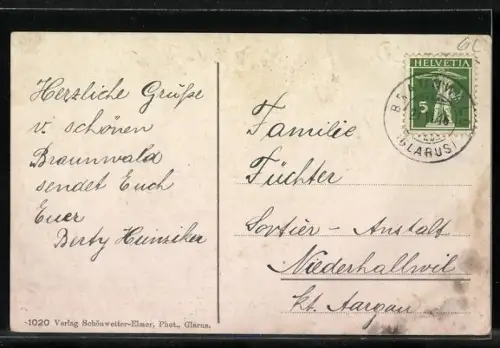 Herzliche Grüße
v. schönen
Braunwald
sendet Euch
Euer
Berty Hunziker
-1020 Verlag Schönwetter-Elmer, Phot., Glarus.
6L
HELVETIA
5
BRAUNWALD
(GLARUS)
Familie
Füchter
Sortier-Anstalt
Niederhallwil
Kt. Aargau